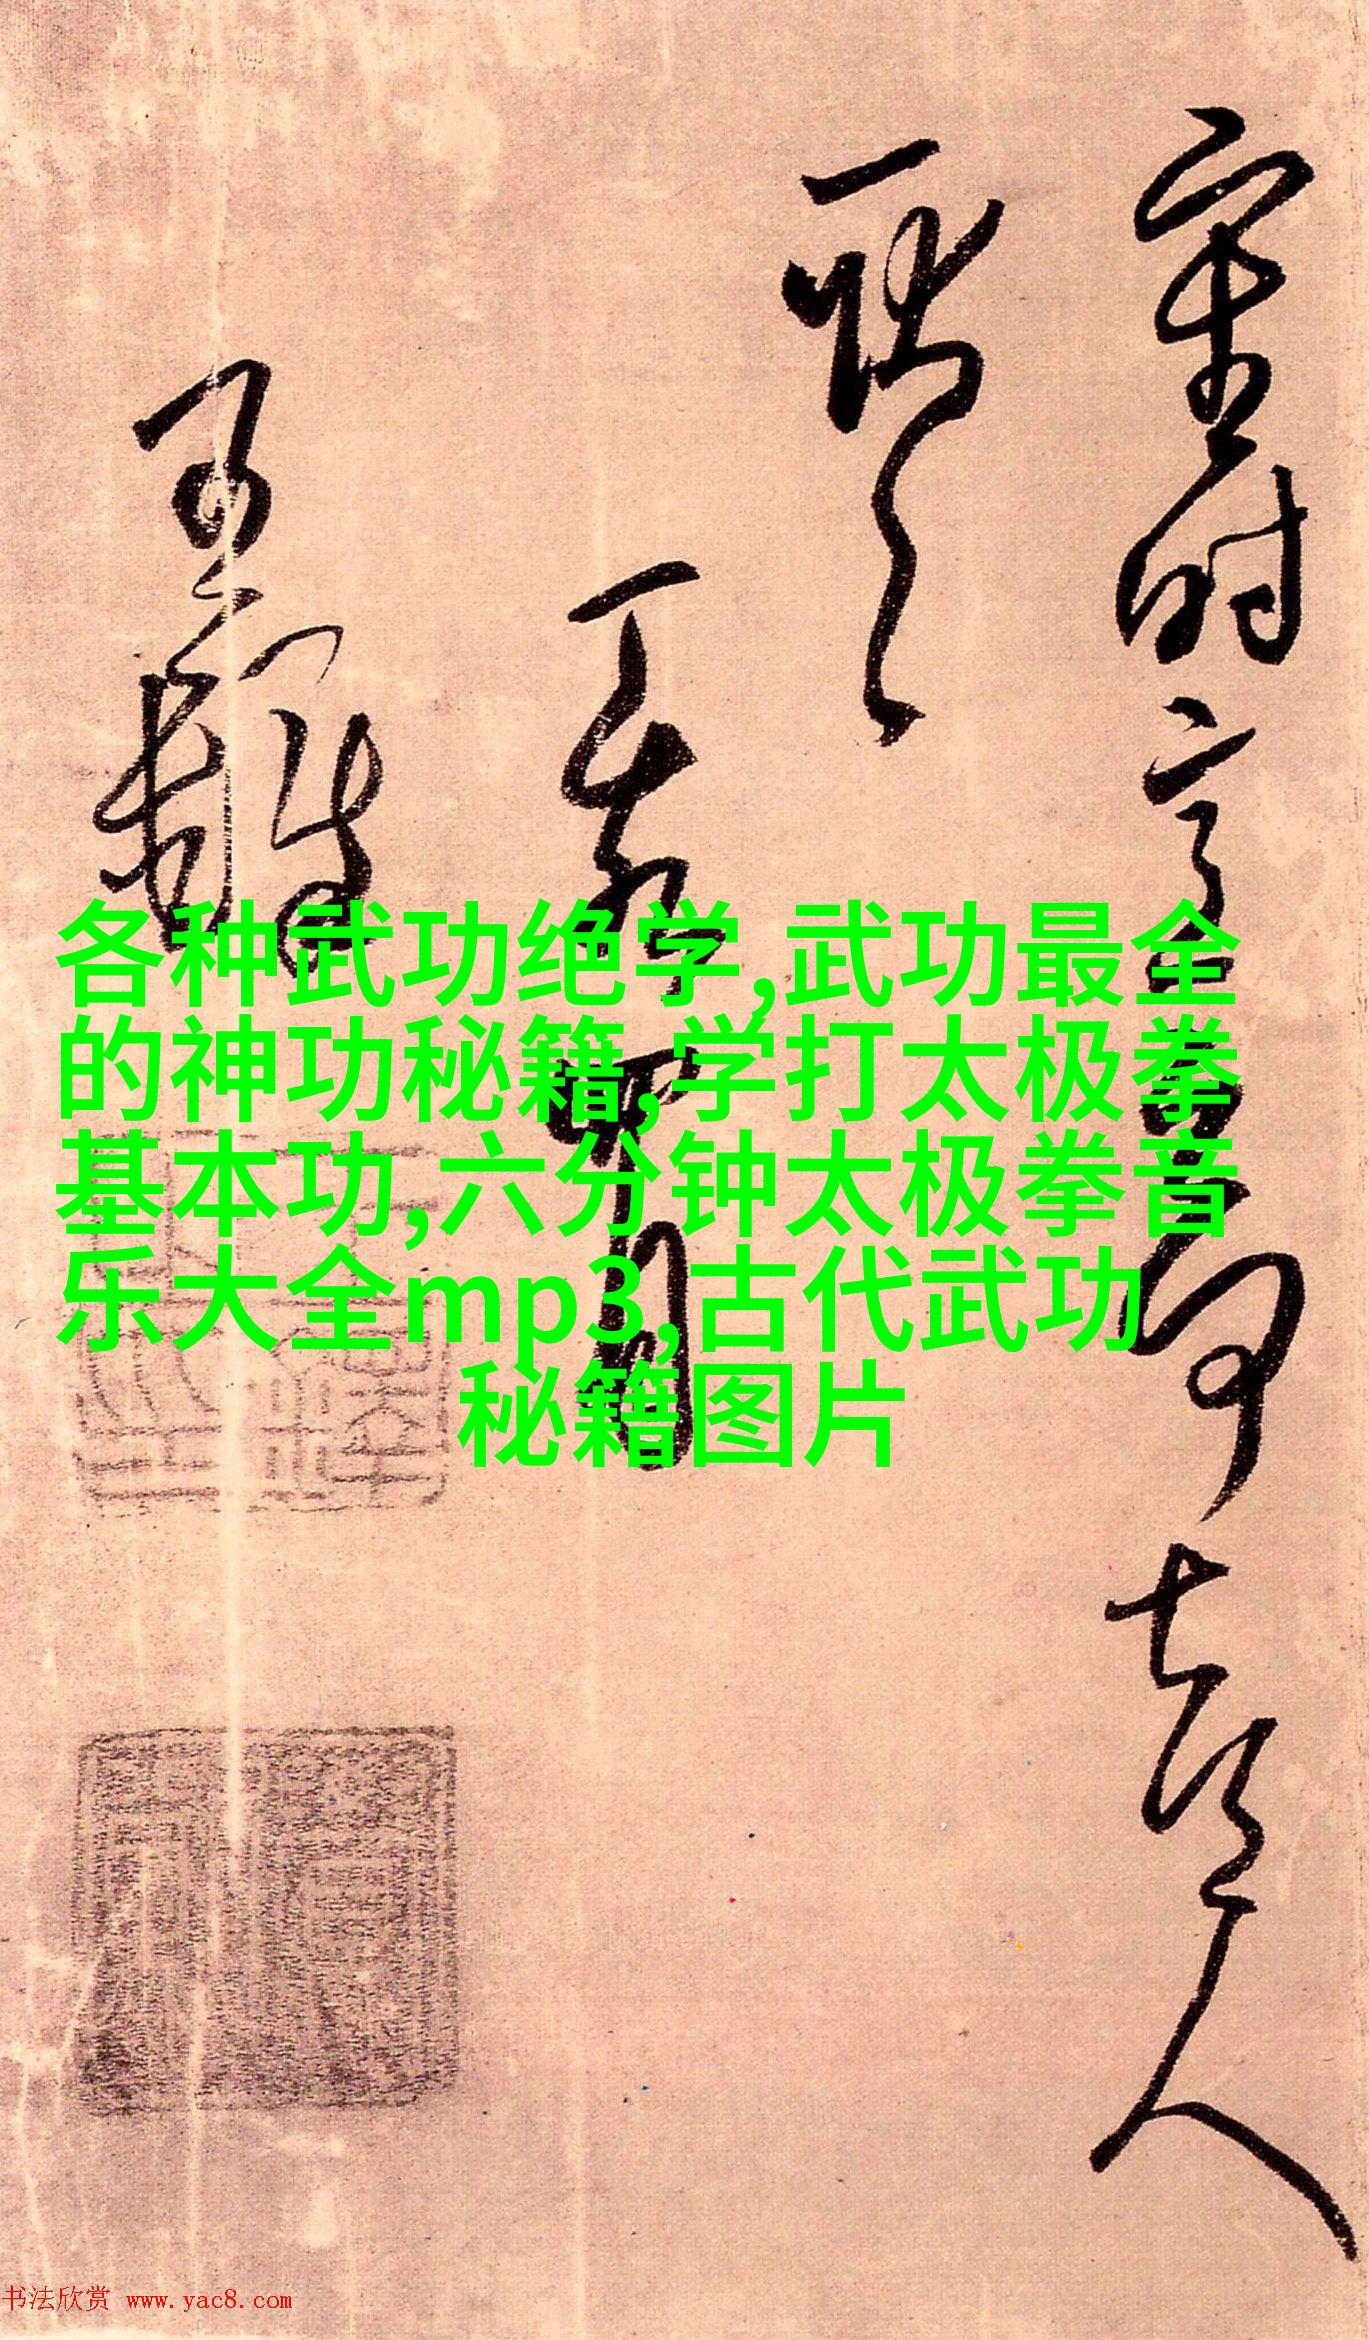 各种武功绝学,武功最全
的神功秘籍,学打太极拳
基本功,六分钟太极拳音
乐大全mp3,古代武功
秘籍图片
丁亥四月
王鐸
书法欣赏 www.yac8.com